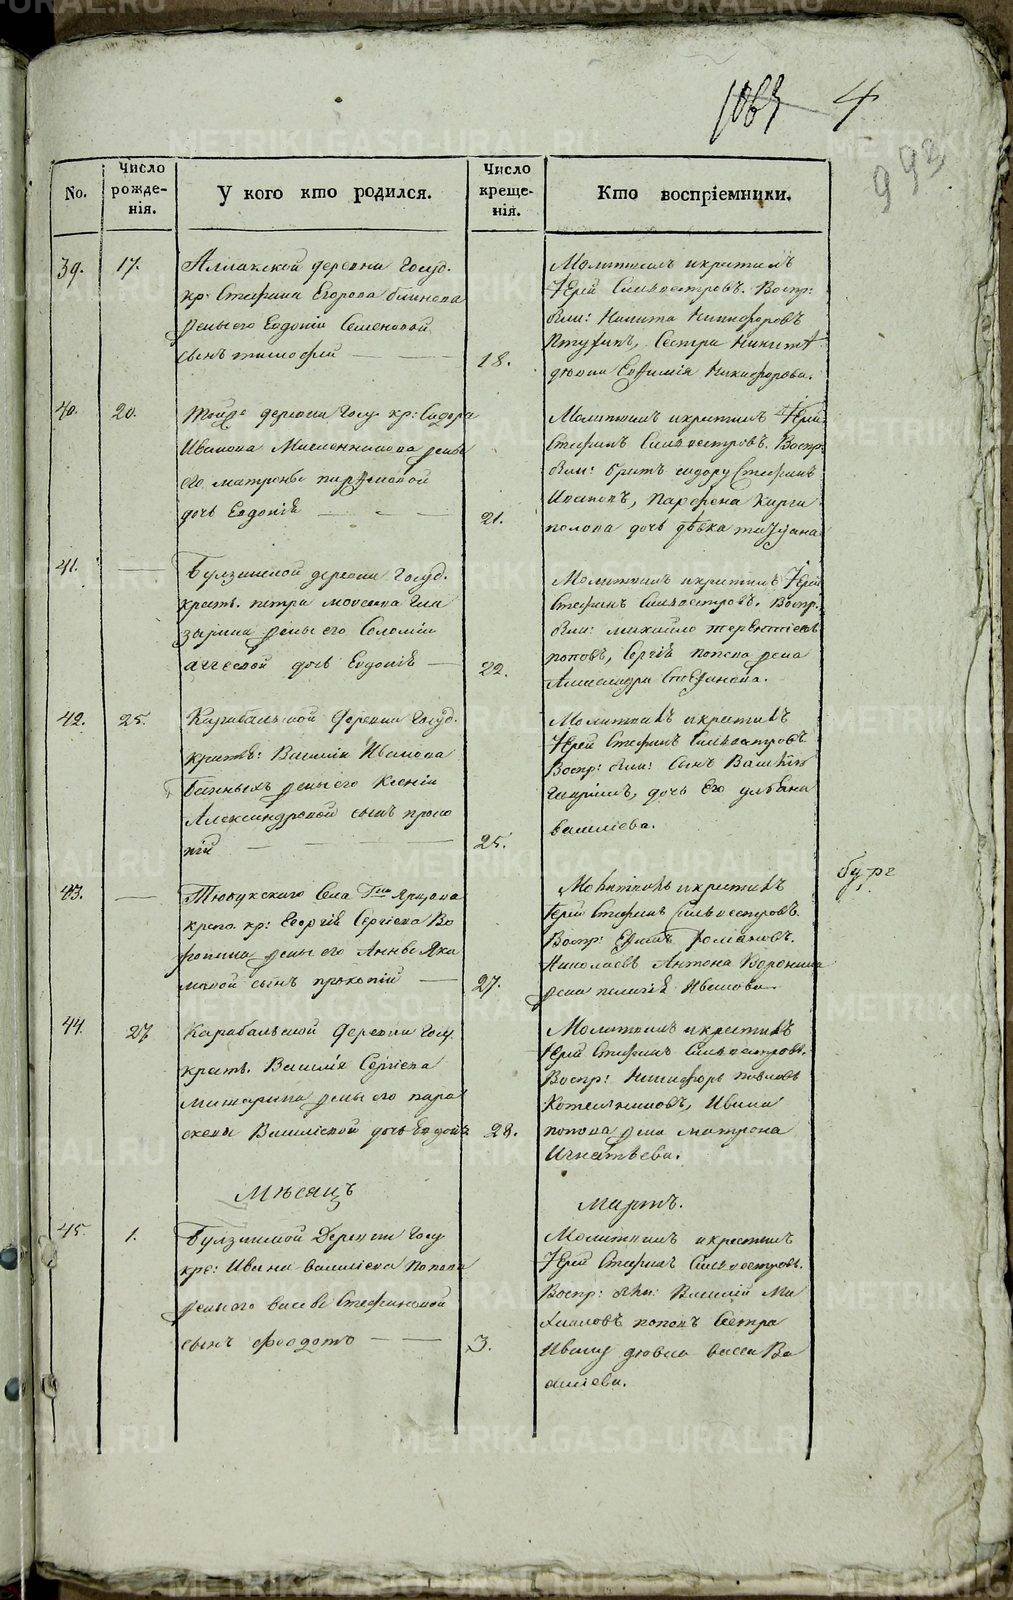 1063 4
993
No.
Число рожденія.
У кого кто родился.
Число крещенія.
Кто воспріемники.
39. 17.
деревни Госуд.
кр: Стефана Егорова Блинова
жены его Евдокіи Семеновой
сынъ тимофей
18.
Молитвилъ и крестилъ
Іерей Сильвестровъ. Воспр:
были: Никита Никифоровъ
Птухинъ, Сестра Никитѣ
девка Евфимія Никифорова.
40. 20.
Тойже деревни Госу. кр: Сидора
Иванова Масленникова жены
его матроны
дочь Евдокія
21.
Молитвилъ и крестилъ Іерей
Стефанъ Сильвестровъ. Воспр:
были: братъ сидору Стефанъ
Ивановъ, Парфена Карга
полова дочь дѣвка татіана
41.
Булзинской деревни Госуд.
крест. петра моисеева Гла
зырина жены его Соломіи
дочь Евдокія
22.
Молитвилъ и крестилъ Іерей
Стефанъ Сильвестровъ. Воспр:
были: михайло терентіевъ
поповъ, Сергія попова жена
Александра Стефанова.
42. 25.
Карабольской деревни Госуд.
крест: Василія Иванова
жены его Ксеніи
Александровой сынъ проко
пій
25.
Молитвилъ и крестилъ
Іерей Стефанъ Сильвестровъ
Воспр: были: сынъ
Гавріилъ, дочь его ульяна
василіева.
43.
Тюбукского Села Гна
крест. кр: Георгія Сергіева Во
ронина жены его Анны Яко
млевой сынъ прокопій
27.
Молитвилъ и крестилъ
Іерей Стефанъ Сильвестровъ.
Воспр: Романовъ.
Николаевъ Антона Воронина
жена пелагія Иванова.
44. 27
Карабольской Деревни Госу.
крест. Василія Сергіева
жены его пара
скевы Василіевой дочь Евдокія
28.
Молитвилъ и крестилъ
Іерей Стефанъ Сильвестровъ.
Воспр: Никифоръ павловъ
Котельниковъ, Ивана
попова жена матрона
Игнатьева.
Мѣсяцъ
Мартъ.
45. 1.
Булзинской Деревни Госу.
кре: Ивана василіева Попова
жены его вассы Стефановой
сынъ феодотъ
3.
Молитвилъ и крестилъ
Іерей Стефанъ Сильвестровъ.
Воспр: были: Василій Ми
хаиловъ поповъ Сестра
Ивану девка васса Ва
силіева.
METRIKI.GASO-URAL.RU